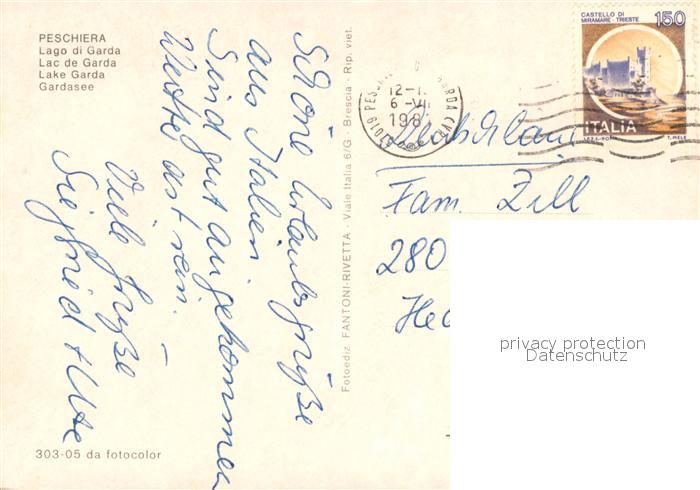 PESCHIERA
Lago di Garda
Lac de Garda
Lake Garda
Gardasee
Schöne Urlaubsgrüße
aus Italien.
Sind gut angekommen
Wetter ast rein.
Viele Grüße
Siegfried + Ute
303-05 da fotocolor
Fotoediz. FANTONI-RIVETTA - Viale Italia 6/G - Brescia - Rip. viet.
CASTELLO DI
MIRAMARE - TRIESTE
150
ITALIA
I.P.Z.S.-ROMA T. MELE
37019 PESCHIERA
12-1
6-VII
198
Deutschland
Fam. Zill
280
He
privacy protection
Datenschutz